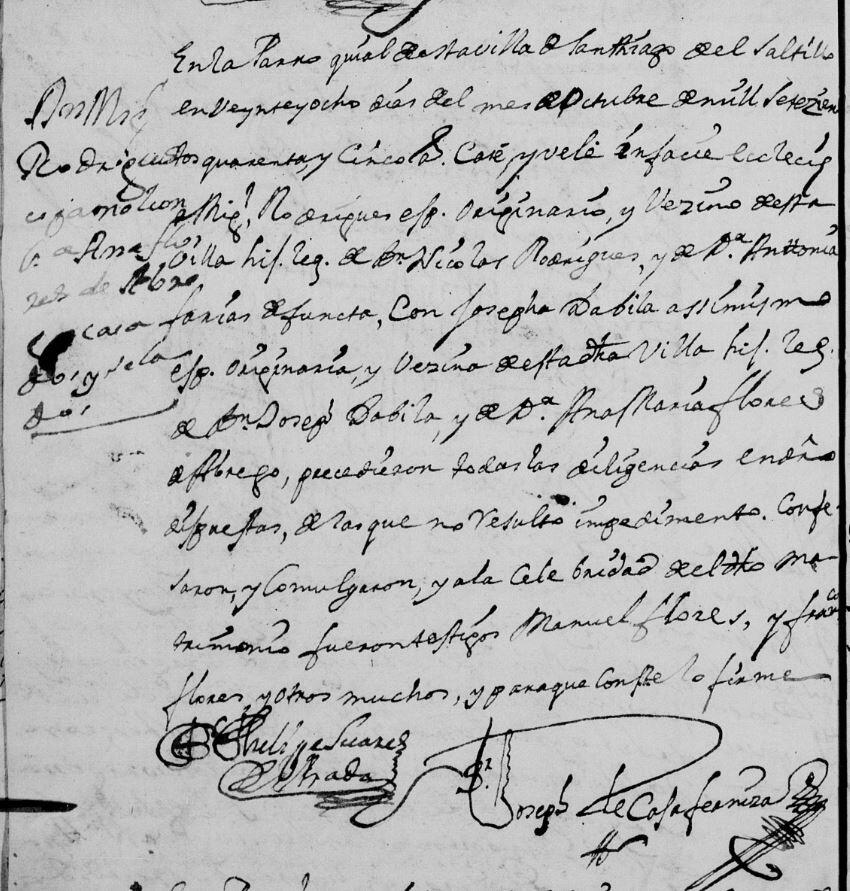 En la Parro quial de esta villa de Santhiago de el Saltillo
en Veynte y ocho dias del mes de Octubre de mill Setezien
tos quarenta, y Cinco as. Casé, y velé in facie eclecię
a Migl. Rodrigues esp. Originario, y Vezino de esta
Villa hif. leg. de Dn. Nicolas Rodrigues, y de Da. Anttonia
farias defuncta, Con Josepha Dabila assimismo
esp. Originaria, y Vezina de esta dha Villa hif. leg.
de Dn. Joseph Dabila, y de Da. Ana Maria flores
de Abrego, precedieron todas las diligencias en dro
dispuestas, de las que no Resulto impedimento. Confe
saron, y Comulgaron, y a la Celebridad de el dho Ma
trimonio fueron testigos Manuel flores, y franco
flores, y otros muchos, y para que Conste lo firme
Dn Migl
Rodrigues
Ana flo
res de Abre
go casa
dos, y vela
dos,
Br. Phelipe Suares
de Estrada
Br. Joseph de Casafernisa